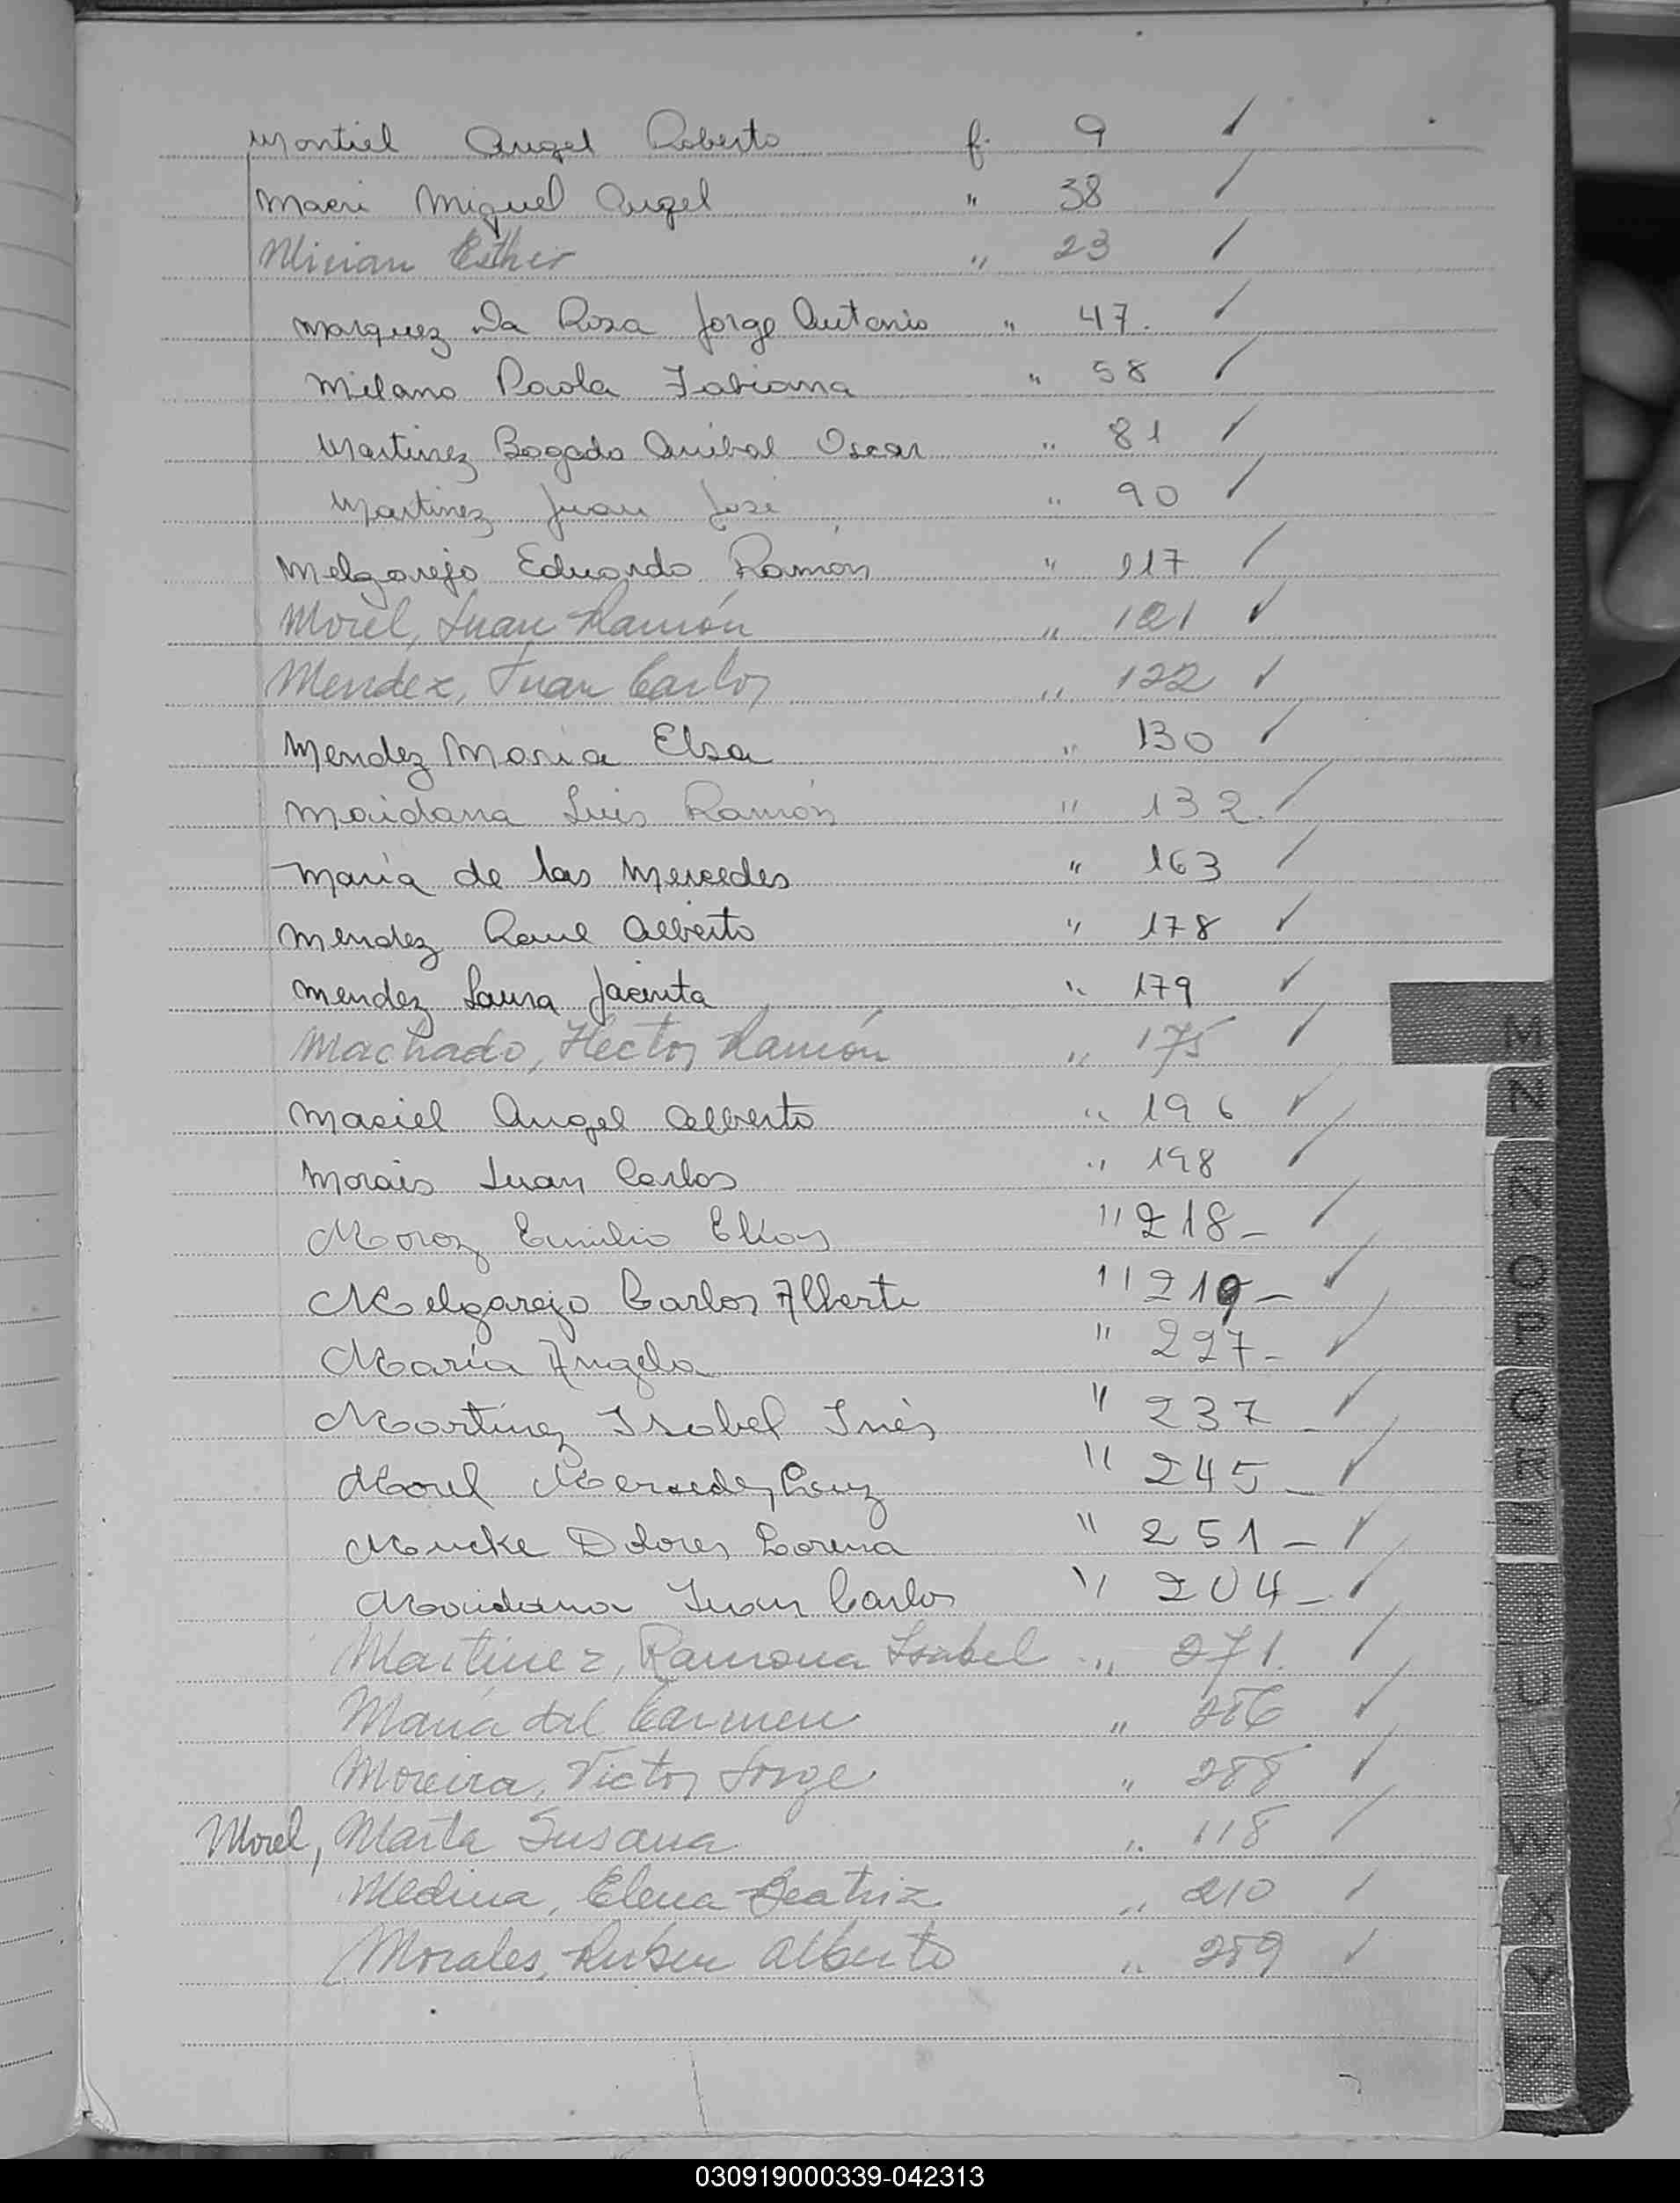 Montiel Angel Roberto f. 9 ✓
Macri Miguel Angel " 38 ✓
Mirian Esther " 23 ✓
Marquez Da Rosa Jorge Antonio " 47. ✓
Milano Paola Fabiana " 58 ✓
Martinez Bogado Anibal Oscar " 81 ✓
Martinez Juan José " 90 ✓
Melgarejo Eduardo Ramón " 117 ✓
Morel, Juan Ramón " 121 ✓
Mendez, Juan Carlos " 122 ✓
Mendez Maria Elsa " 130 ✓
Maidana Luis Ramón " 132. ✓
María de las Mercedes " 163 ✓
Mendez Raul Alberto " 178 ✓
Mendez Laura Jacinta " 179 ✓
Machado, Hector Ramón " 175 ✓
Maciel Angel Alberto " 196 ✓
Morais Juan Carlos " 198 ✓
Moroz Emilio Elías " 218- ✓
Melgarejo Carlos Alberto " 219- ✓
María Angela " 227- ✓
Martínez Isabel Inés " 237- ✓
Morel Mercedes Luz " 245- ✓
Mucke Dolores Lorena " 251- ✓
Maidana Juan Carlos " 204- ✓
Martinez, Ramona Isabel " 271. ✓
María del Carmen " 286 ✓
Moreira, Victor Jorge " 288 ✓
Morel, Marta Susana " 118 ✓
Medina, Elena Beatriz " 210 ✓
Morales, Ruben Alberto " 289 ✓
M
N
Ñ
O
P
Q
R
U
W
X
Y
Z
030919000339-042313